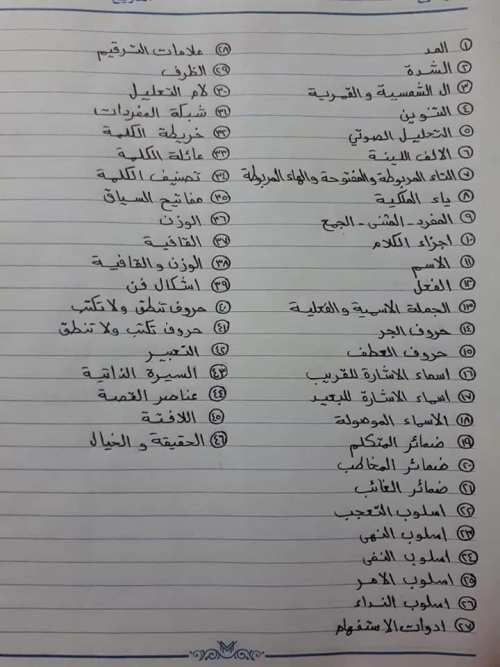 ١ المد
٢ الشدة
٣ ال الشمسية والقمرية
٤ التنوين
٥ التحليل الصوتي
٦ الالف اللينة
٧ التاء المربوطة والمفتوحة والهاء المربوطة
٨ ياء الملكية
٩ المفرد - المثنى - الجمع
١٠ اجزاء الكلام
١١ الاسم
١٢ الفعل
١٣ الجملة الاسمية والفعلية
١٤ حروف الجر
١٥ حروف العطف
١٦ اسماء الاشارة للقريب
١٧ اسماء الاشارة للبعيد
١٨ الاسماء الموصولة
١٩ ضمائر المتكلم
٢٠ ضمائر المخاطب
٢١ ضمائر الغائب
٢٢ اسلوب التعجب
٢٣ اسلوب النهى
٢٤ اسلوب النفى
٢٥ اسلوب الامر
٢٦ اسلوب النداء
٢٧ ادوات الاستفهام
٢٨ علامات الترقيم
٢٩ الظرف
٣٠ لام التعليل
٣١ شبكة المفردات
٣٢ خريطة الكلمة
٣٣ عائلة الكلمة
٣٤ تصنيف الكلمة
٣٥ مفاتيح السياق
٣٦ الوزن
٣٧ القافية
٣٨ الوزن والقافية
٣٩ اشكال فن
٤٠ حروف تنطق ولا تكتب
٤١ حروف تكتب ولا تنطق
٤٢ التعبير
٤٣ السيرة الذاتية
٤٤ عناصر القصة
٤٥ اللافتة
٤٦ الحقيقة و الخيال